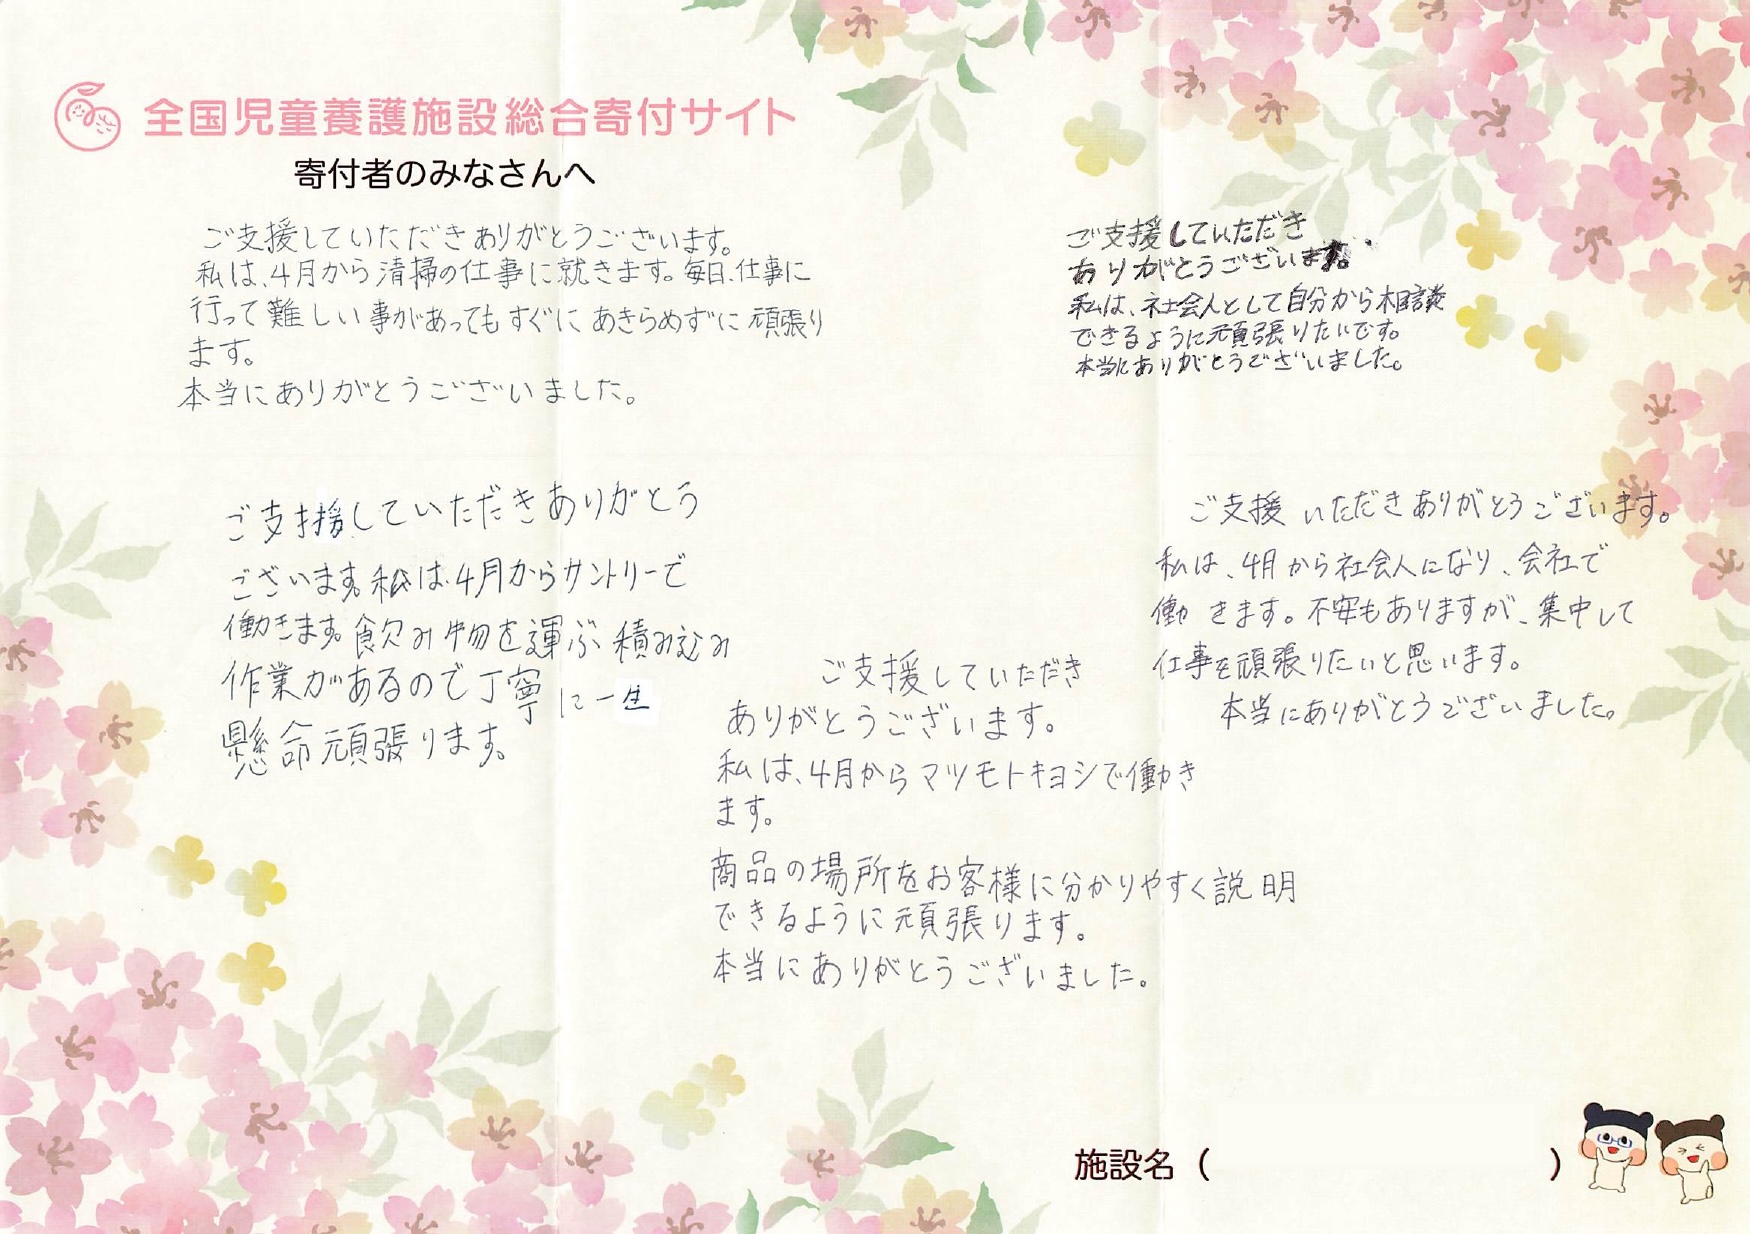 全国児童養護施設総合寄付サイト
寄付者のみなさんへ
ご支援していただきありがとうございます。
私は、4月から清掃の仕事に就きます。毎日、仕事に
行って難しい事があってもすぐにあきらめずに頑張り
ます。
本当にありがとうございました。
ご支援していただき
ありがとうございます。
私は、社会人として自分から相談
できるように頑張りたいです。
本当にありがとうございました。
ご支援していただきありがとう
ございます。私は、4月からサントリーで
働きます。飲み物を運ぶ積み込み
作業があるので丁寧に一生
懸命頑張ります。
ご支援していただき
ありがとうございます。
私は、4月からマツモトキヨシで働き
ます。
商品の場所をお客様に分かりやすく説明
できるように頑張ります。
本当にありがとうございました。
ご支援いただきありがとうございます。
私は、4月から社会人になり、会社で
働きます。不安もありますが、集中して
仕事を頑張りたいと思います。
本当にありがとうございました。
施設名（　）